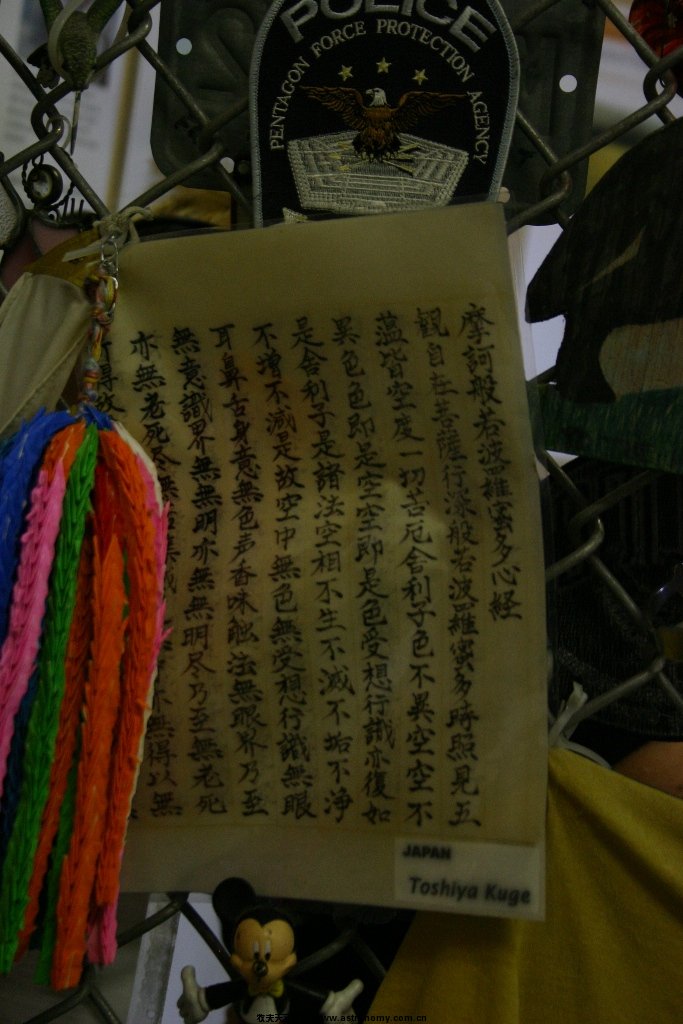 POLICE
PENTAGON FORCE PROTECTION AGENCY
摩訶般若波羅蜜多心経
観自在菩薩行深般若波羅蜜多時照見五
蘊皆空度一切苦厄舎利子色不異空空不
異色色即是空空即是色受想行識亦復如
是舎利子是諸法空相不生不滅不垢不浄
不増不減是故空中無色無受想行識無眼
耳鼻舌身意無色声香味触法無眼界乃至
無意識界無無明亦無無明尽乃至無老死
亦無老死尽無
無得以無
JAPAN
Toshiya Kuge
www.astronomy.com.cn